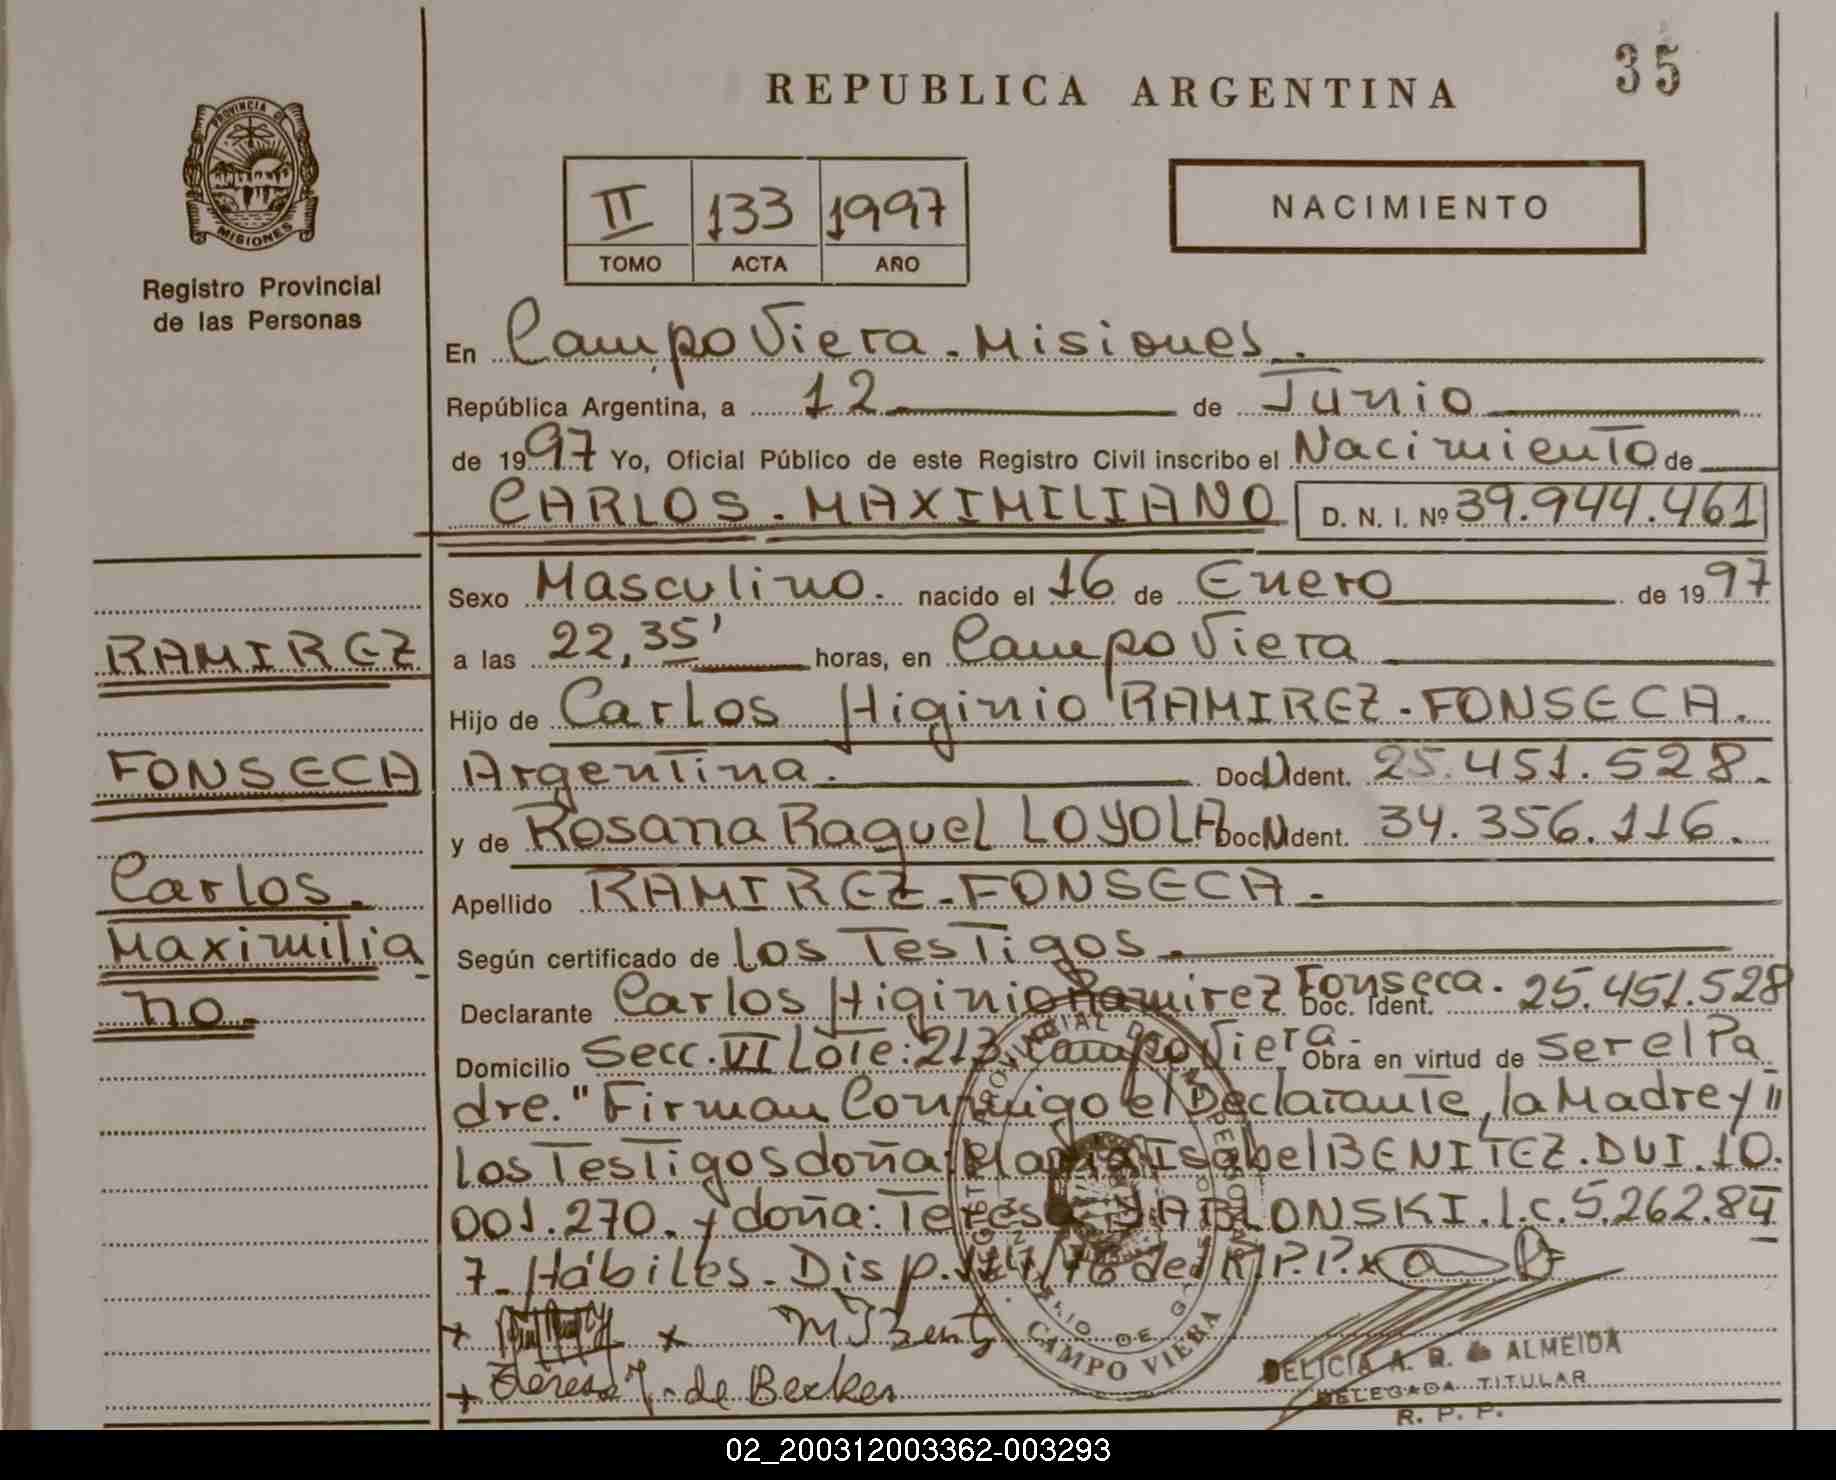 35
REPUBLICA ARGENTINA
PROVINCIA DE
MISIONES
Registro Provincial
de las Personas
II 133 1997
TOMO ACTA AÑO
NACIMIENTO
En Campo Viera - Misiones.
República Argentina, a 12 de Junio
de 1997 Yo, Oficial Público de este Registro Civil inscribo el Nacimiento de
CARLOS - MAXIMILIANO D. N. I. Nº 39.944.461
Sexo Masculino. nacido el 16 de Enero de 1997
a las 22,35' horas, en Campo Viera
Hijo de Carlos Higinio RAMIREZ - FONSECA.
Argentina. Doc. Ident. 25.451.528.
y de Rosana Raquel LOYOLA Doc. Ident. 34.356.116.
Apellido RAMIREZ - FONSECA -
Según certificado de los Testigos.
Declarante Carlos Higinio Ramirez Fonseca. Doc. Ident. 25.451.528
Domicilio Secc. VI Lote: 213. Campo Viera - Obra en virtud de ser el Pa
dre." Firman Conmigo el Declarante, la Madre y "
los Testigos doña: Maria Isabel BENITEZ. DUI. 10.
001.270. y doña: Teresa JABLONSKI. l.c. 5.262.84
7- Hábiles - Disp. 117/76 del R.P.P. x
+ x
+ Teresa J. de Becker
RAMIREZ
FONSECA
Carlos.
Maximilia
no.
CAMPO VIERA
DELICIA A. R. de ALMEIDA
DELEGADA TITULAR
R. P. P.
02_200312003362-003293